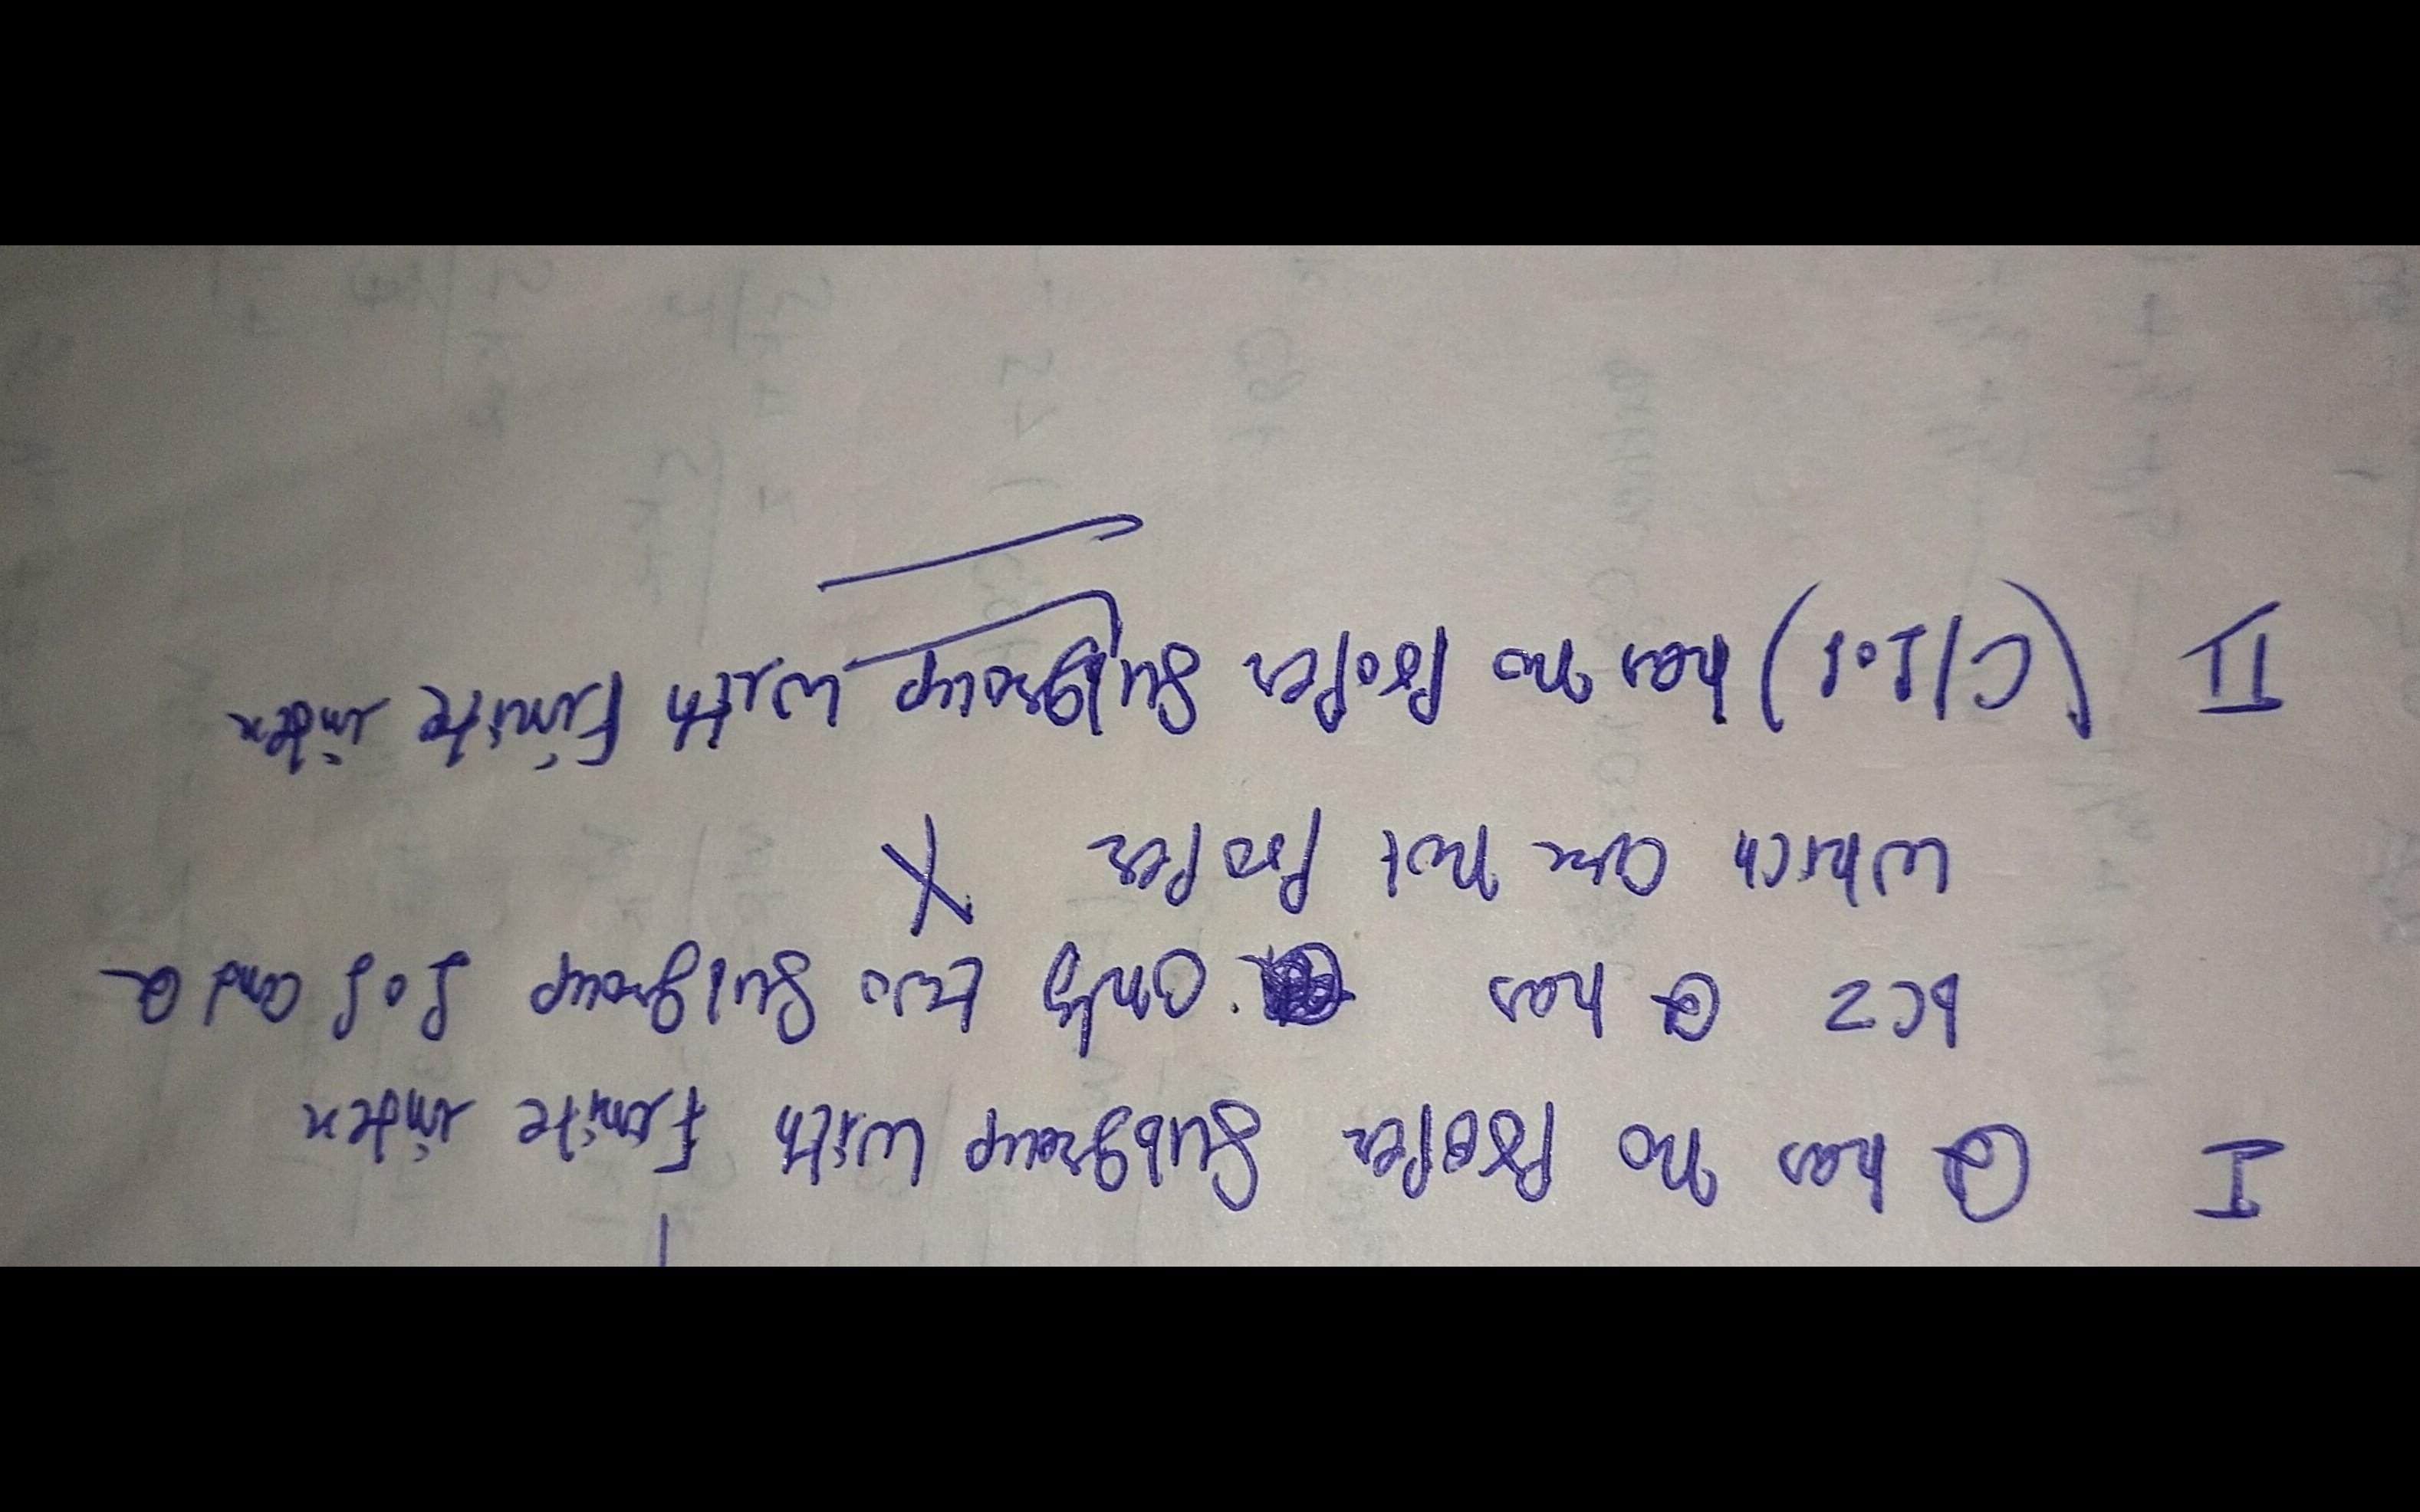 I Q has no proper subgroup with finite index
bcz Q has only two subgroup {0} and Q
which are not proper X
II (C, {0}) has no proper subgroup with finite index